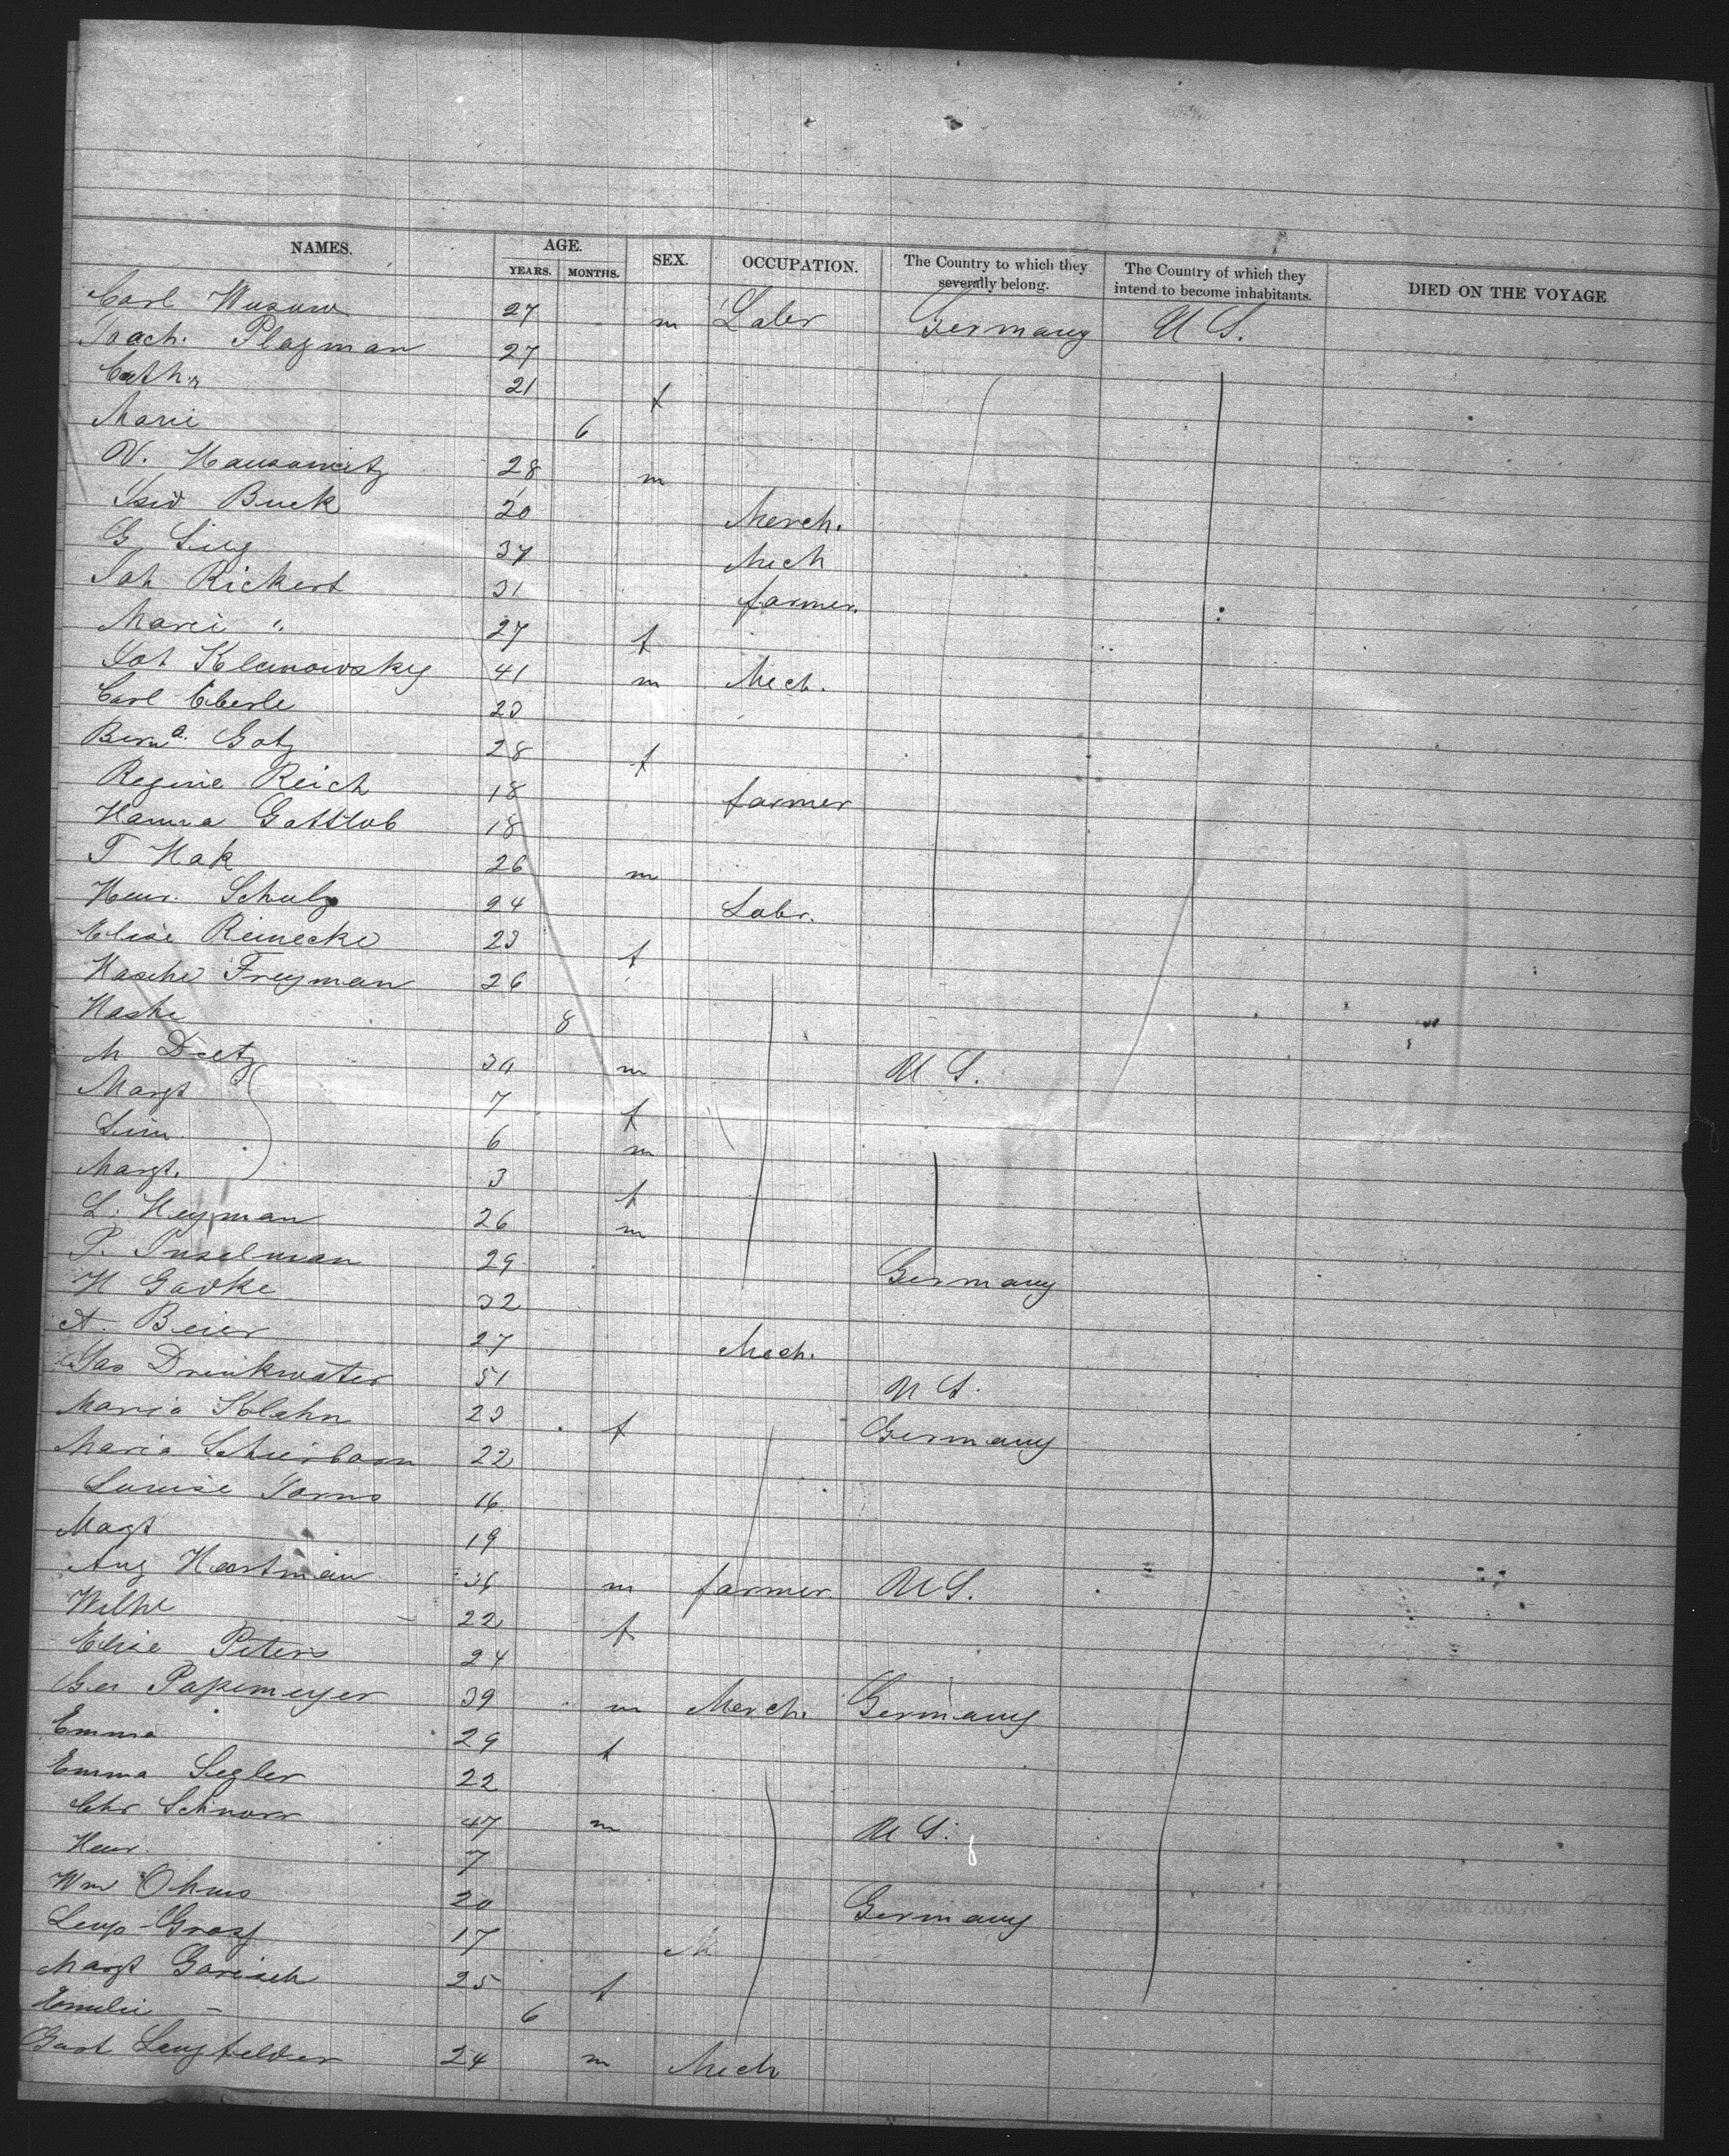 NAMES. AGE. SEX. OCCUPATION. The Country to which they severally belong. The Country of which they intend to become inhabitants. DIED ON THE VOYAGE
YEARS. MONTHS.
Carl Wusow 27 m Labr Germany U S.
Joach. Plagman 27
Cath. 21 f
Marie 6
28 m
Isid Buck 20 Merch.
G 37 Mech
Joh Rickert 31 farmer.
Marie " 27 f
Joh Klanowsky 41 m Mech.
Carl Eberle 23
Berna. Gotz 28 f
Regine Reich 18 farmer
Hanna Gottlob 18
T Hak 26 m
Henr. Schulz 24 Labr.
Elise Reinecke 23 f
Hasche Freyman 26
Hashe 8
M Dietz 34 m U S.
Margt 7 f
6 m
Margt. 3 f
L. Heyman 26 m
P. Inselman 29 Germany
H Gadke 32
A. Beier 27 Mech.
Jas Drinkwater 51 U S.
Maria Klahn 23 f Germany
Maria Schierbaon 22
Louise Jorns 16
Magt 19
Aug Hartman 36 m farmer. U S.
Wilhe 22 f
Elise Peters 24
Geo Papemeyer 39 m Merch. Germany
Emma 29 f
Emma Segler 22
Chr Schnorr 47 m U S.
Henr. 7
Wm Ohms 20 Germany
Leop Grasf 17 M
Margt Garisch 25 f
Emilie - 6
Gust Lengfelder 24 m Mech